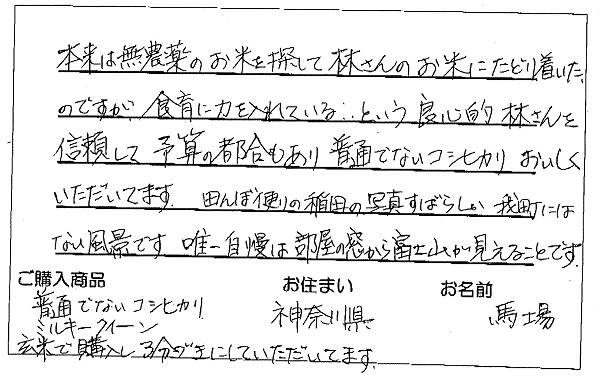 本来は無農薬のお米を探して林さんのお米にたどり着いた
のですが、食育に力を入れている‥という良心的林さんを
信頼して予算の都合もあり普通でないコシヒカリおいしく
いただいてます。田んぼ便りの稲田の写真すばらしい我町には
ない風景です 唯一自慢は部屋の窓から富士山が見えることです。
ご購入商品 お住まい お名前
普通でないコシヒカリ 神奈川県 馬場
ミルキークイーン
玄米で購入し3分づきにしていただいてます。